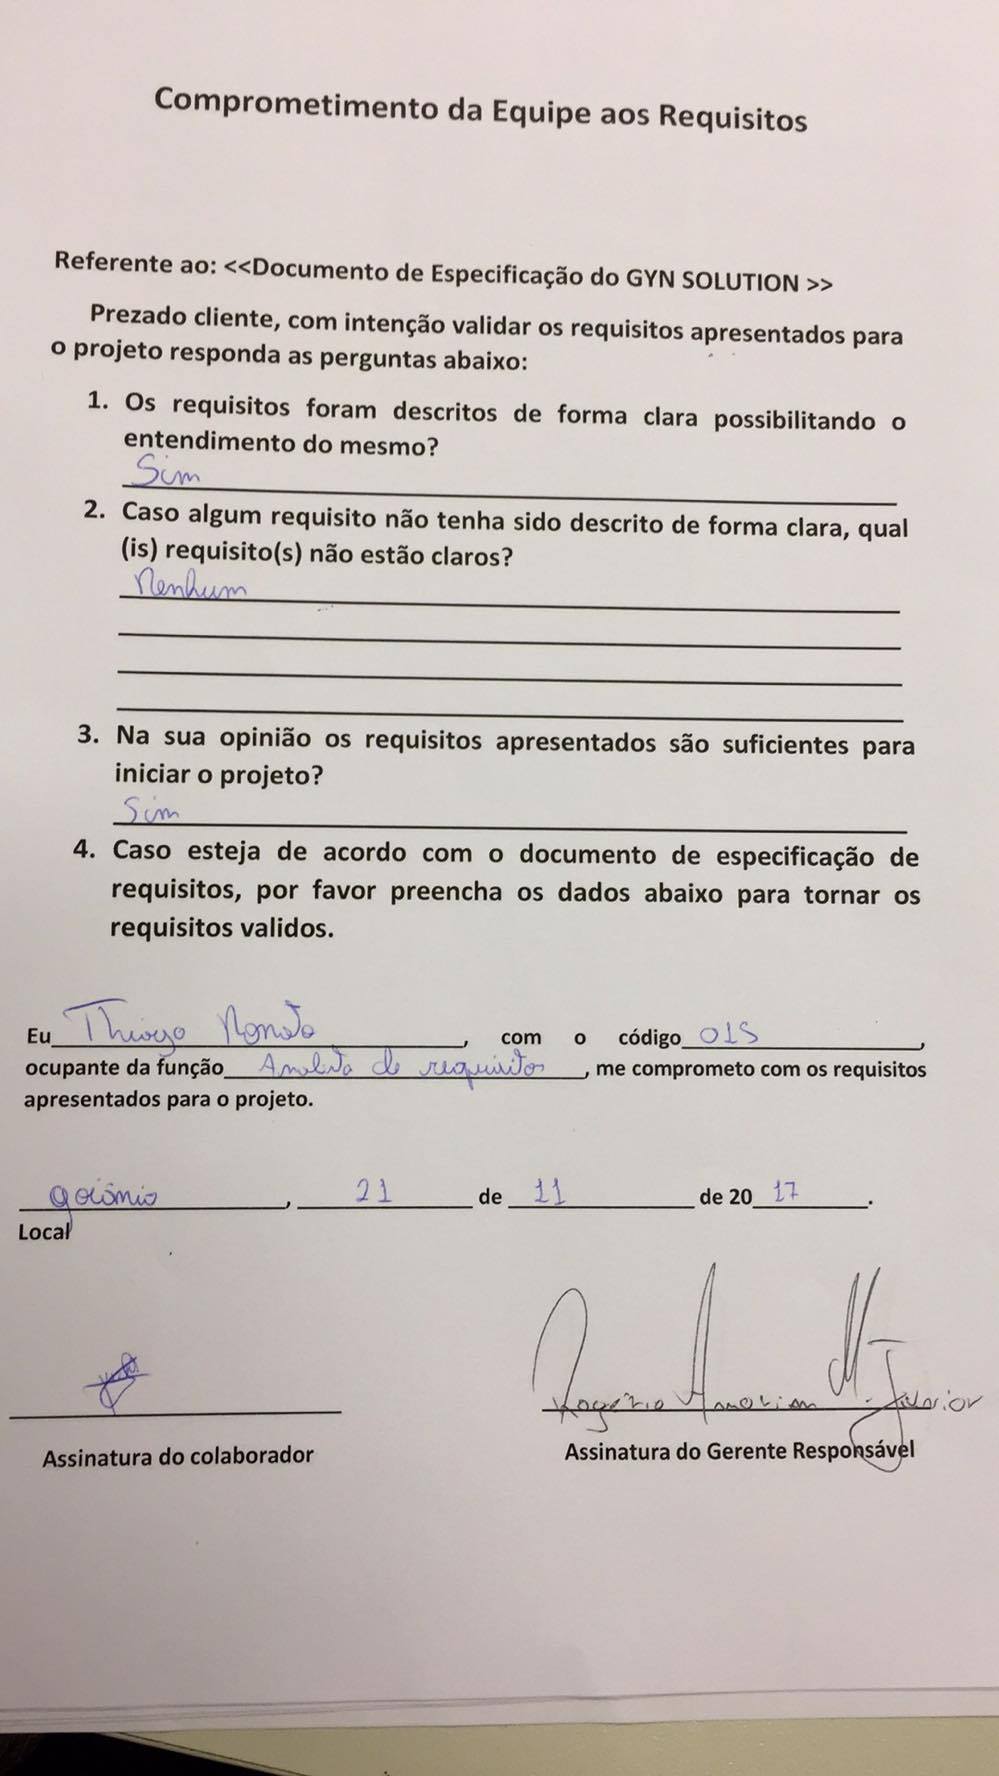 Comprometimento da Equipe aos Requisitos
Referente ao: <<Documento de Especificação do GYN SOLUTION >>
Prezado cliente, com intenção validar os requisitos apresentados para
o projeto responda as perguntas abaixo:
1. Os requisitos foram descritos de forma clara possibilitando o
entendimento do mesmo?
Sim
2. Caso algum requisito não tenha sido descrito de forma clara, qual
(is) requisito(s) não estão claros?
Nenhum
3. Na sua opinião os requisitos apresentados são suficientes para
iniciar o projeto?
Sim
4. Caso esteja de acordo com o documento de especificação de
requisitos, por favor preencha os dados abaixo para tornar os
requisitos validos.
Eu Thiago, com o código 015,
ocupante da função Analista de requisitos, me comprometo com os requisitos
apresentados para o projeto.
Goiânia, 21 de 11 de 2017.
Local
Rogério Amorim M. Junior
Assinatura do colaborador Assinatura do Gerente Responsável